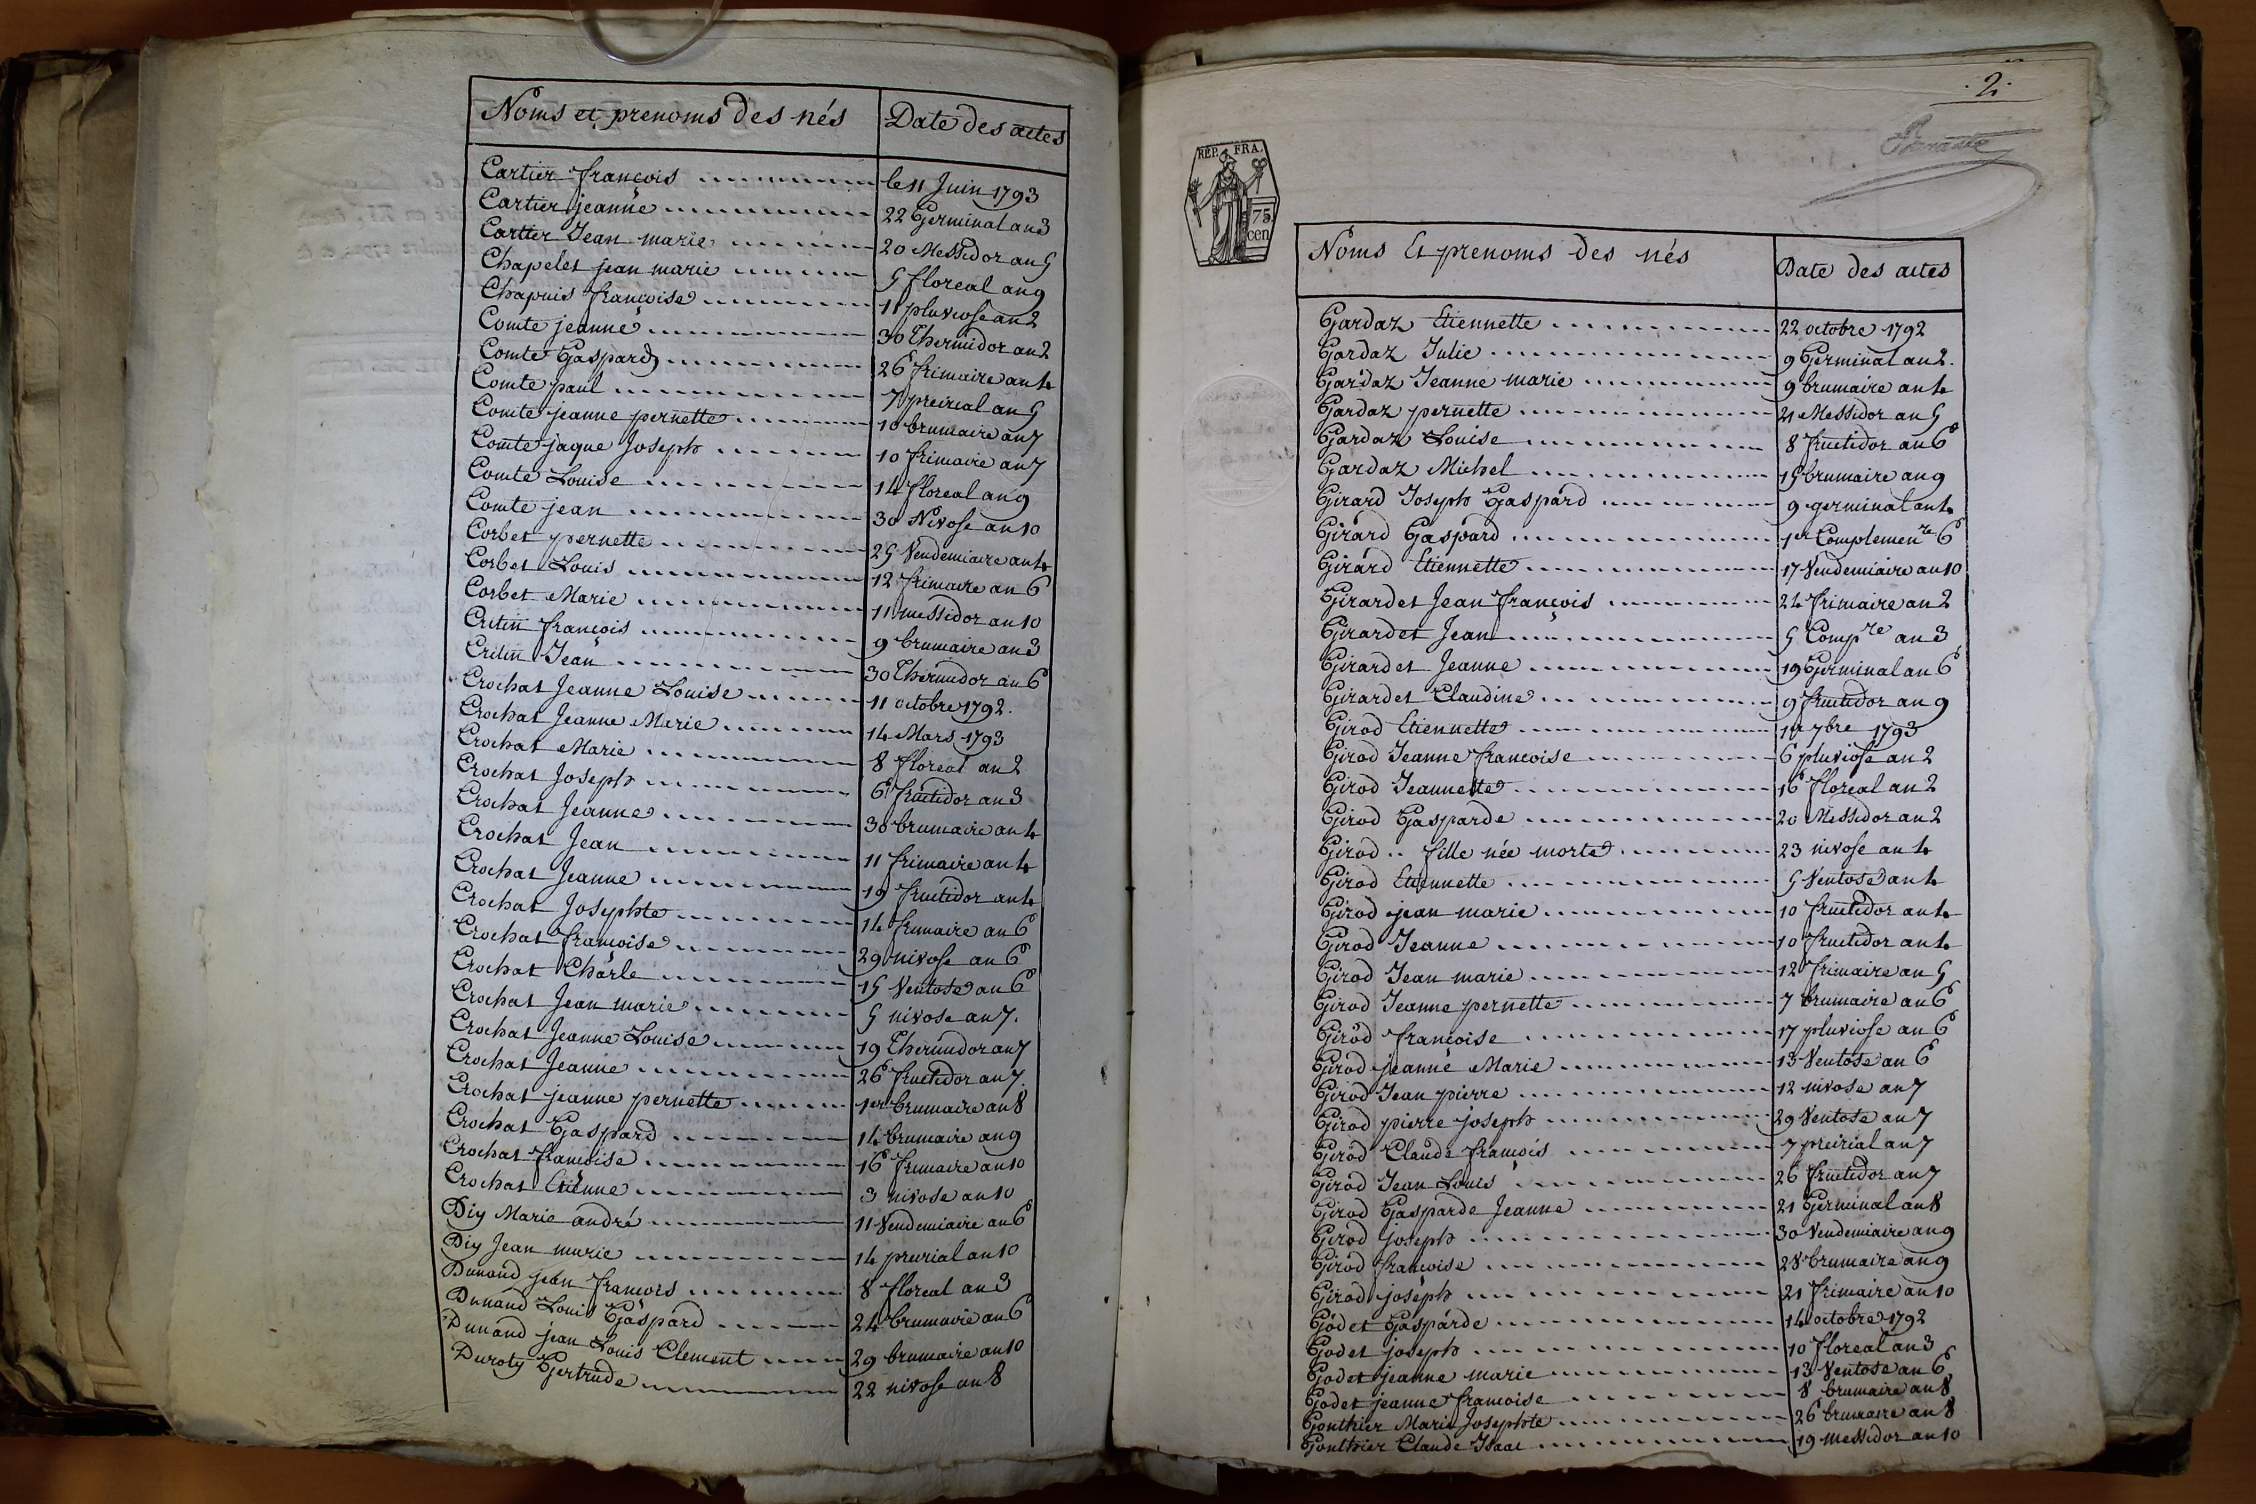 Noms et prenoms des nés Date des actes
Cartier françois le 11 Juin 1793
Cartier jeanne 22 Germinal an 3
Cartier Jean marie 20 Messidor an 5
Chapelet jean marie 5 floreal an 9
Chapuis françoise 11 pluviose an 2
Comte jeanne 30 Thermidor an 2
Comte Gaspard 26 frimaire an 4
Comte paul 7 preirial an 5
Comte jeanne pernette 10 brumaire an 7
Comte jaque Joseph 10 frimaire an 7
Comte Louise 14 floreal an 9
Comte jean 30 Nivose an 10
Corbet pernette 25 Vendemiaire an 4
Corbet Louis 12 frimaire an 6
Corbet Marie 11 messidor an 10
Cretin françois 9 brumaire an 3
Cretin Jean 30 Thermidor an 6
Crochat Jeanne Louise 11 octobre 1792.
Crochat Jeanne Marie 14 Mars 1793
Crochat Marie 8 floreal an 2
Crochat Joseph 6 fructidor an 3
Crochat Jeanne 30 brumaire an 4
Crochat Jean 11 frimaire an 4
Crochat Jeanne 19 fructidor an 4
Crochat Josephte 14 frimaire an 6
Crochat françoise 29 nivose an 6
Crochat Charle 15 Ventose an 6
Crochat Jean marie 5 nivose an 7.
Crochat Jeanne Louise 19 Thermidor an 7
Crochat Jeanne 26 fructidor an 7
Crochat jeanne pernette 1er brumaire an 8
Crochat Gaspard 14 brumaire an 9
Crochat françoise 16 frimaire an 10
Crochat Etienne 3 nivose an 10
Diy Marie andré 11 Vendemiaire an 6
Diy Jean marie 14 preirial an 10
Dunand jean françois 8 floreal an 3
Dunand Louis Gaspard 24 brumaire an 6
Dunand jean Louis Clement 29 brumaire an 10
Duroty Gertrude 22 nivose an 8
.2.
REP. FRA.
75.
cen
Noms Et prenoms des nés Date des actes
Gardaz Etiennette 22 octobre 1792
Gardaz Julie 9 Germinal an 2.
Gardaz Jeanne marie 9 brumaire an 4
Gardaz pernette 21 Messidor an 5
Gardaz Louise 8 fructidor an 6
Gardaz Michel 15 brumaire an 9
Girard Joseph Gaspard 9 germinal an 4
Girard Gaspard 1er Complemenre 6
Girard Etiennette 17 Vendemiaire an 10
Girardet Jean françois 24 frimaire an 2
Girardet Jean 5 Compre an 3
Girardet Jeanne 19 Germinal an 6
Girardet Claudine 9 fructidor an 9
Girod Etiennette 1er 7bre 1793
Girod Jeanne françoise 6 pluviose an 2
Girod Jeannette 16 floreal an 2
Girod Gasparde 20 Messidor an 2
Girod .. fille née morte 23 nivose an 4
Girod Etiennette 5 Ventose an 4
Girod jean marie 10 fructidor an 4
Girod Jeanne 10 fructidor an 4
Girod Jean marie 12 frimaire an 5
Girod Jeanne pernette 7 brumaire an 6
Girod françoise 17 pluviose an 6
Girod jeanne Marie 13 Ventose an 6
Girod Jean pierre 12 nivose an 7
Girod pierre joseph 29 Ventose an 7
Girod Claude françois 7 preirial an 7
Girod Jean Louis 26 fructidor an 7
Girod Gasparde Jeanne 21 Germinal an 8
Girod joseph 30 Vendemiaire an 9
Girod françoise 28 brumaire an 9
Girod joseph 21 frimaire an 10
Godet Gasparde 14 octobre 1792
Godet joseph 10 floreal an 3
Godet jeanne marie 13 Ventose an 6
Godet jeanne françoise 8 brumaire an 8
Gonthier Marie Josephte 26 brumaire an 8
Gonthier Claude Isaac 19 messidor an 10